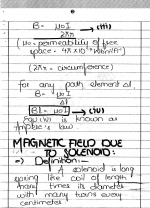 B = μ₀I → (iii)
2πr
(μ₀ = permeability of free
space = 4π×10⁻⁷ Wbm⁻¹A⁻¹)
(2πr = circumference)
for any path element Δl,
B = μ₀I
Δl
BΔl = μ₀I → (iv)
Eq (iv) is known as
Ampere's law.
MAGNETIC FIELD DUE
TO SOLENOID:
⇒ Definition:-
A solenoid is long
wire like coil of length
many times its diameter
with many turns every
centimeter